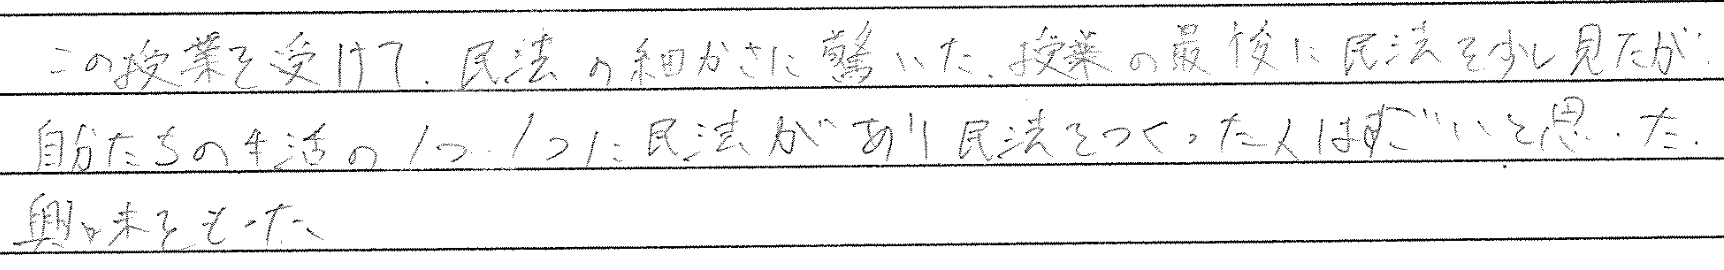 この授業を受けて、民法の細かさに驚いた。授業の最後に民法を少し見たが、
自分たちの生活の1つ、1つに民法があり民法をつくった人はすごいと思った。
興味をもった